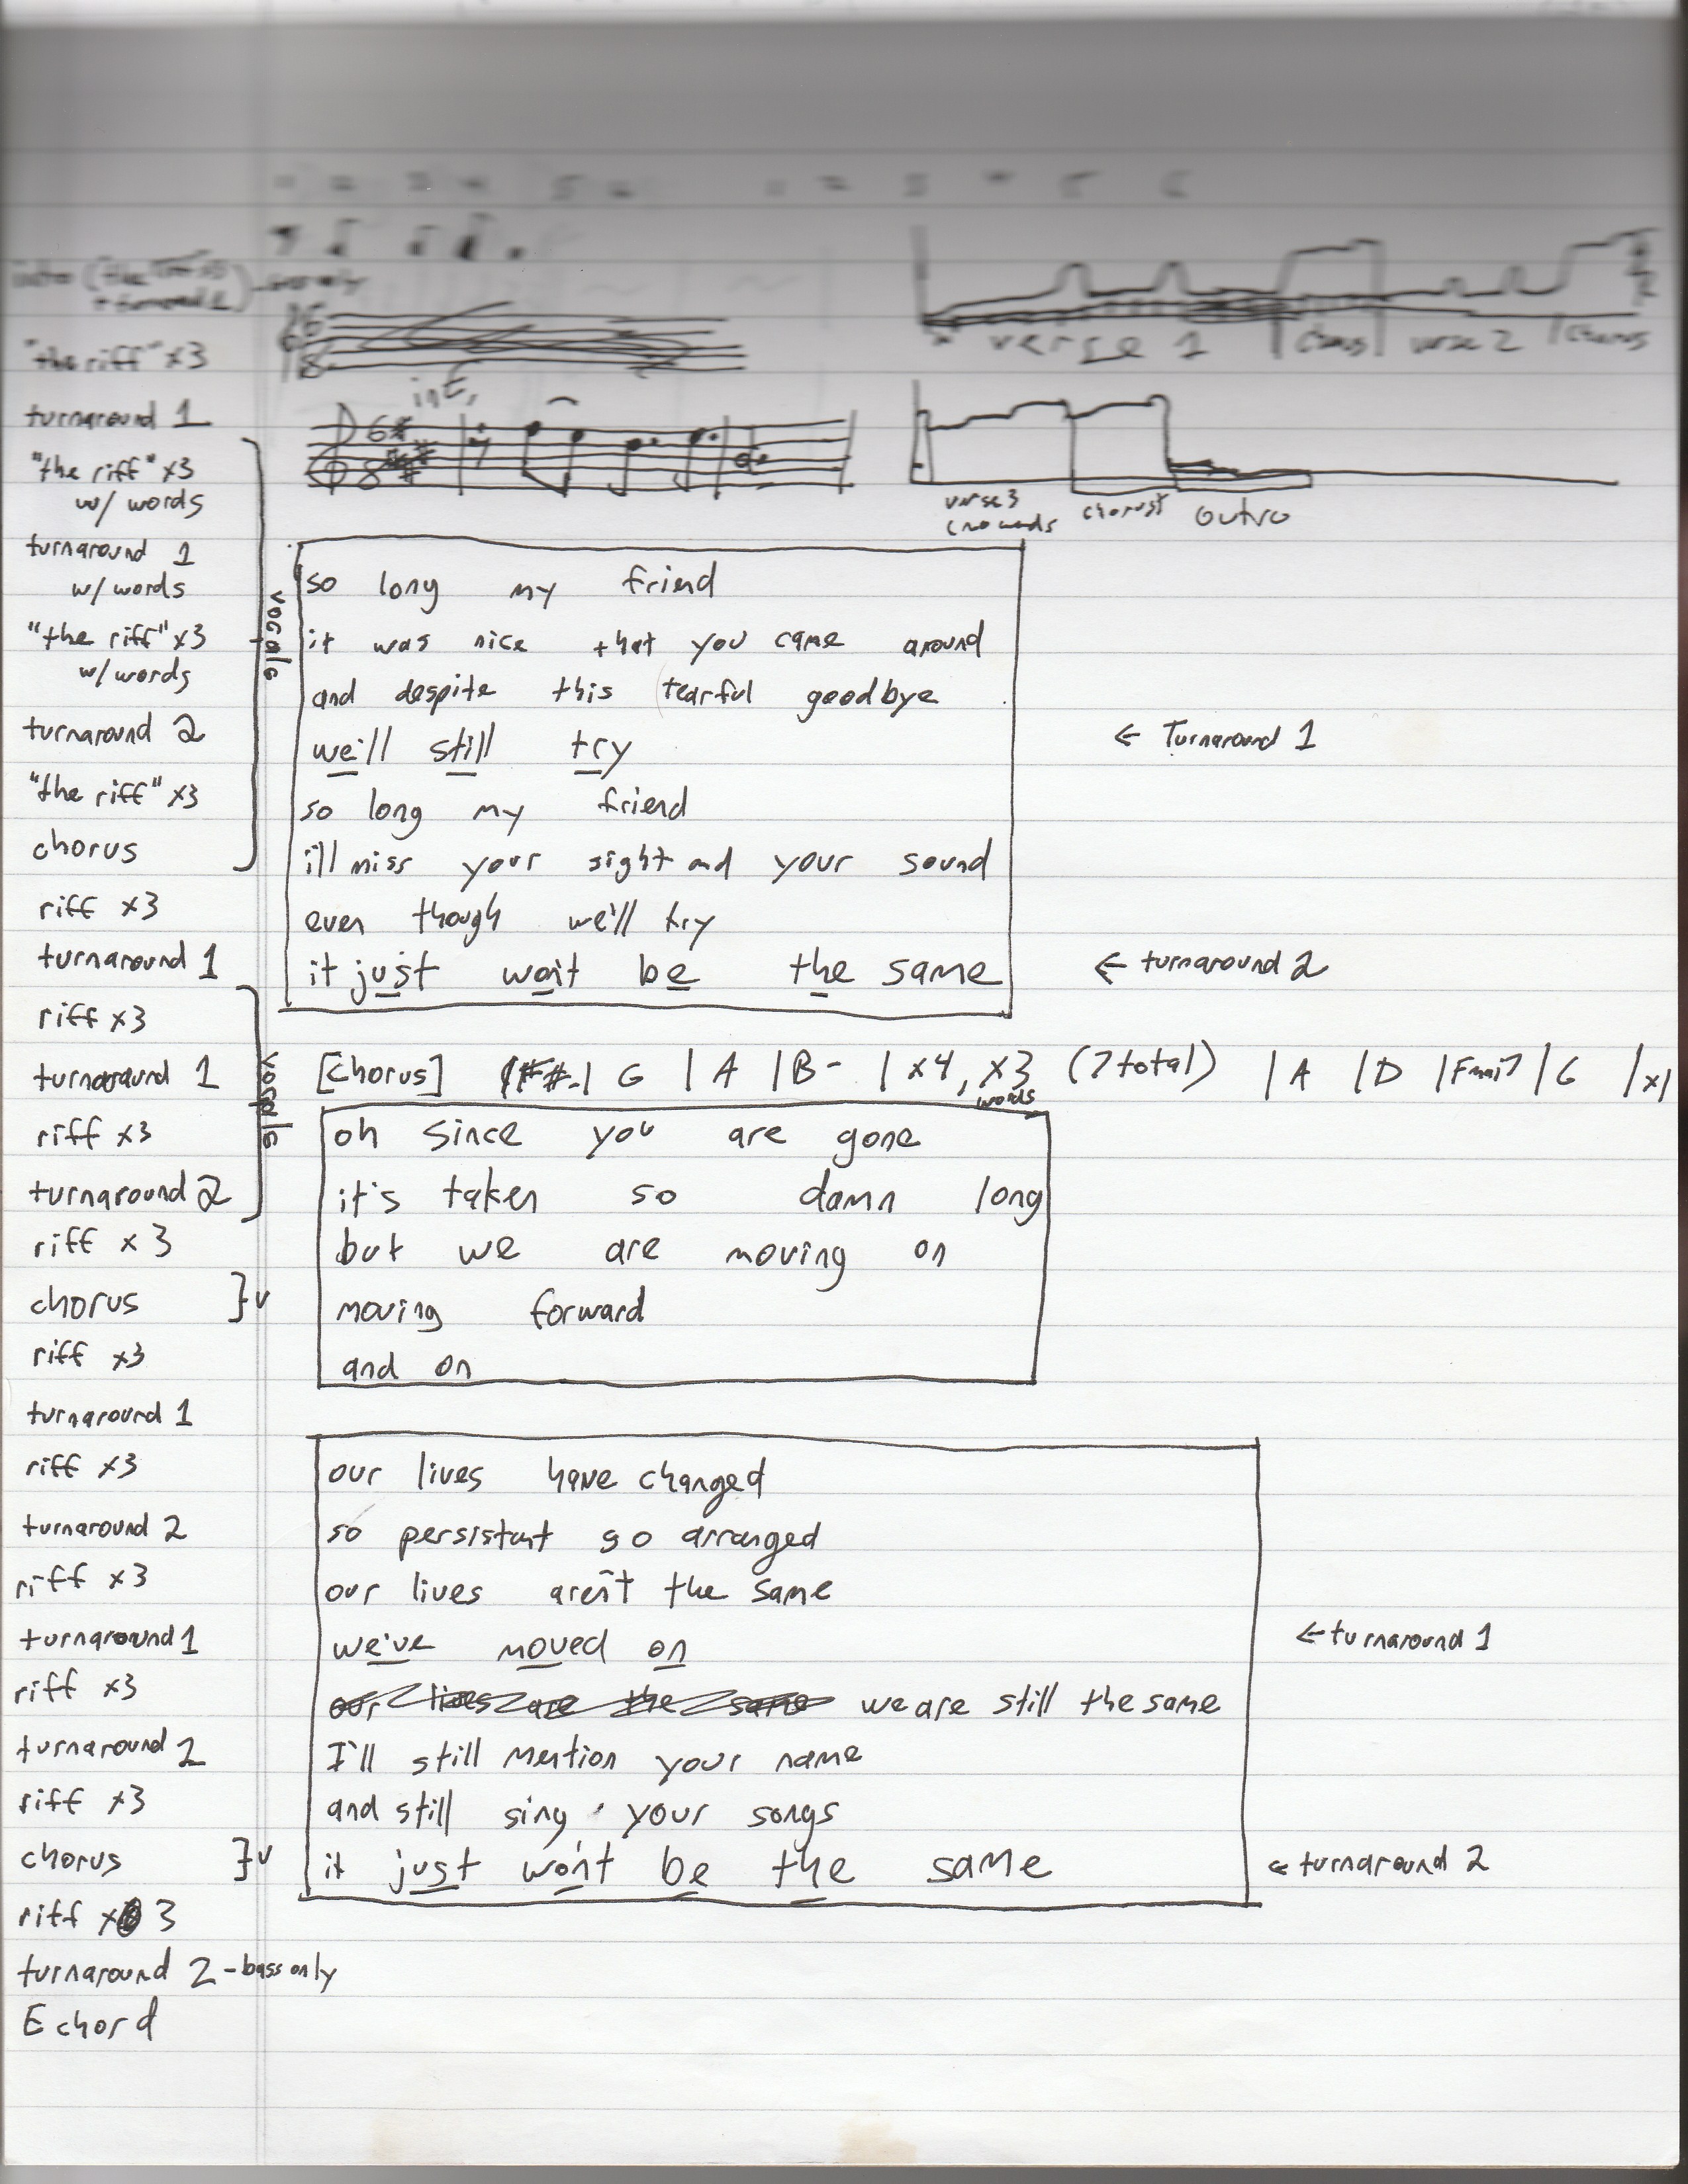 "the riff" x3
turnaround 1
"the riff" x3
w/ words
turnaround 1
w/ words
"the riff" x3
w/ words
turnaround 2
"the riff" x3
chorus
riff x3
turnaround 1
riff x3
turnaround 1
riff x3
turnaround 2
riff x 3
chorus } v
riff x3
turnaround 1
riff x3
turnaround 2
riff x3
turnaround 1
riff x3
turnaround 2
riff x3
chorus } v
riff x 3
turnaround 2 - bass only
E chord
vocals
vocals
int,
6
8
verse 1 | chorus | verse 2 | chorus
verse 3
(no words
chorus
outro
so long my friend
it was nice that you came around
and despite this tearful goodbye
we'll still try ← Turnaround 1
so long my friend
ill miss your sight and your sound
even though we'll try
it just won't be the same ← turnaround 2
[chorus] | G | A | B- | x4, x3 (7 total) | A | D | Fmaj7 | G | x1
words
oh since you are gone
it's taken so damn long
but we are moving on
moving forward
and on
our lives have changed
so persistant so arranged
our lives aren't the same
we've moved on ← turnaround 1
our lives are the same we are still the same
I'll still mention your name
and still sing your songs
it just won't be the same ← turnaround 2